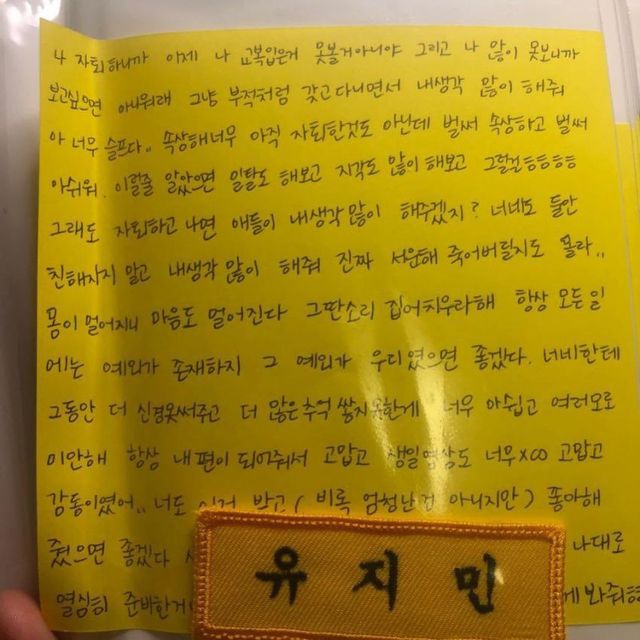 나 자퇴하니까 이제 나 교복입은거 못볼거아니야 그리고 나 많이 못보니까
보고싶으면 아쉬워해 그냥 부적처럼 갖고다니면서 내생각 많이 해줘
아 너무 슬프다.. 속상해너무 아직 자퇴한것도 아닌데 벌써 속상하고 벌써
아쉬워. 이럴줄 알았으면 일탈도 해보고 지각도 많이 해보고 그럴걸ㅎㅎㅎㅎ
그래도 자퇴하고 나면 애들이 내생각많이 해주겠지? 너네도 둘만
친해지지 말고 내생각 많이 해줘 진짜 서운해 죽어버릴지도 몰라..
몸이 멀어지니 마음도 멀어진다 그딴소리 집어치우라해 항상 모든일
에는 예외가 존재하지 그 예외가 우리였으면 좋겠다. 너네한테
그동안 더 신경못써주고 더 많은추억 쌓지못한게 너무 아쉽고 여러모로
미안해 항상 내편이 되어줘서 고맙고 생일영상도 너무x00 고맙고
감동이였어.. 너도 이거 받고(비록 엄청난건 아니지만) 좋아해
줬으면 좋겠다 나대로
열심히 준비한거 봐줘ㅎ
유지민